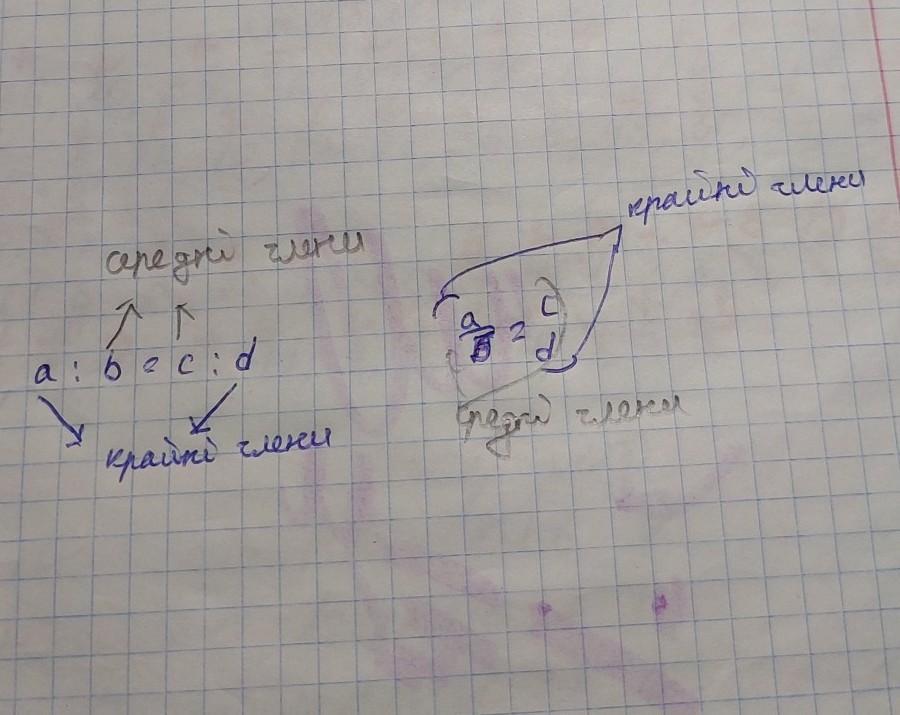 крайні члени
середні члени
a/b = c/d
a : b = c : d
середні члени
крайні члени